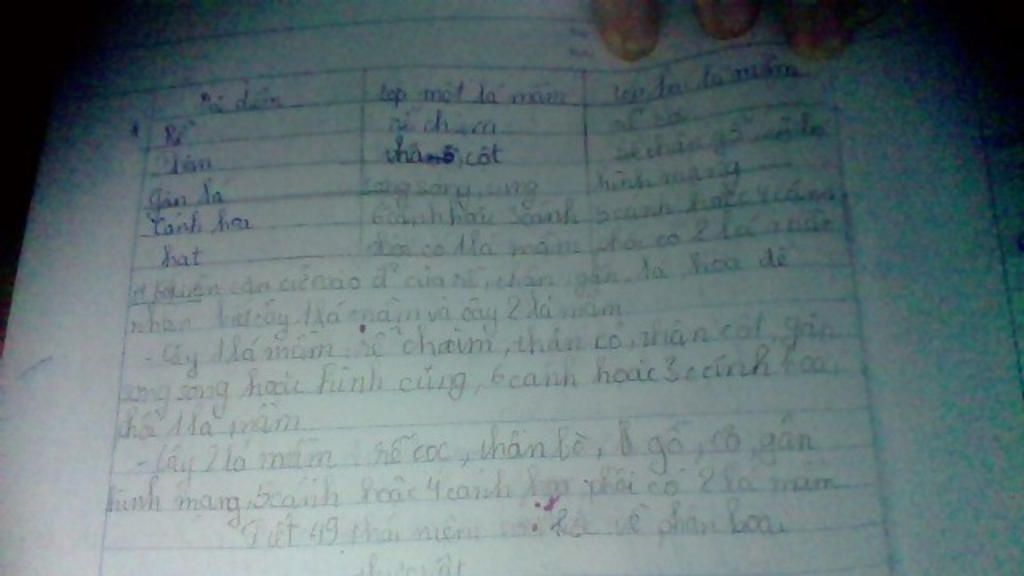 Đặc điểm lớp một lá mầm lớp hai lá mầm
Rễ rễ chùm rễ cọc
Thân thân cỏ, cột
gân lá song song, cung hình mạng
cánh hoa 6 cánh hoặc 3 cánh 5 cánh hoặc 4 cánh
hạt phôi có 1 lá mầm phôi có 2 lá mầm
căn cứ vào đ² của rễ, thân, gân lá, hoa để
nhận biết cây 1 lá mầm và cây 2 lá mầm
- Cây 1 lá mầm: rễ chùm, thân cỏ, thân cột, gân
song song hoặc hình cung, 6 cánh hoặc 3 cánh hoa,
phôi 1 lá mầm
- Cây 2 lá mầm: rễ cọc, thân bò, gỗ, cỏ, gân
hình mạng, 5 cánh hoặc 4 cánh hoa phôi có 2 lá mầm
Tiết 49 khái niệm về phân loại
thực vật